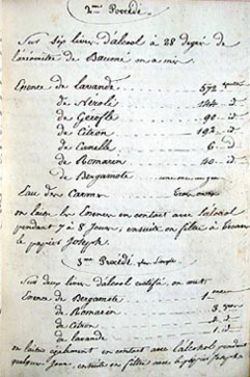 2me Procédé
Sur dix livres d'alcool à 28 degrés de
l'aréomètre de Baumé on a mis
Essence de lavande 572
de Nérolé 144 id
de Gerofle 90 id
de Citron 192 id
de Canelle 6 id
de Romarin 40 id
de Bergamote une once
Eau des Carmes
on laisse les Essences en contact avec l'alcool
pendant 7 à 8 Jours, ensuite on filtre à travers
le papier Joseph.
3me Procédé plus Simple
Sur deux livres d'alcool rectifié, on met
Essence de Bergamote 1
de Romarin 3
de citron 2 id
de lavande 1 id
on laisse également en contact avec l'alcool pendant
quelques Jours, ensuite on filtre avec le papier Joseph